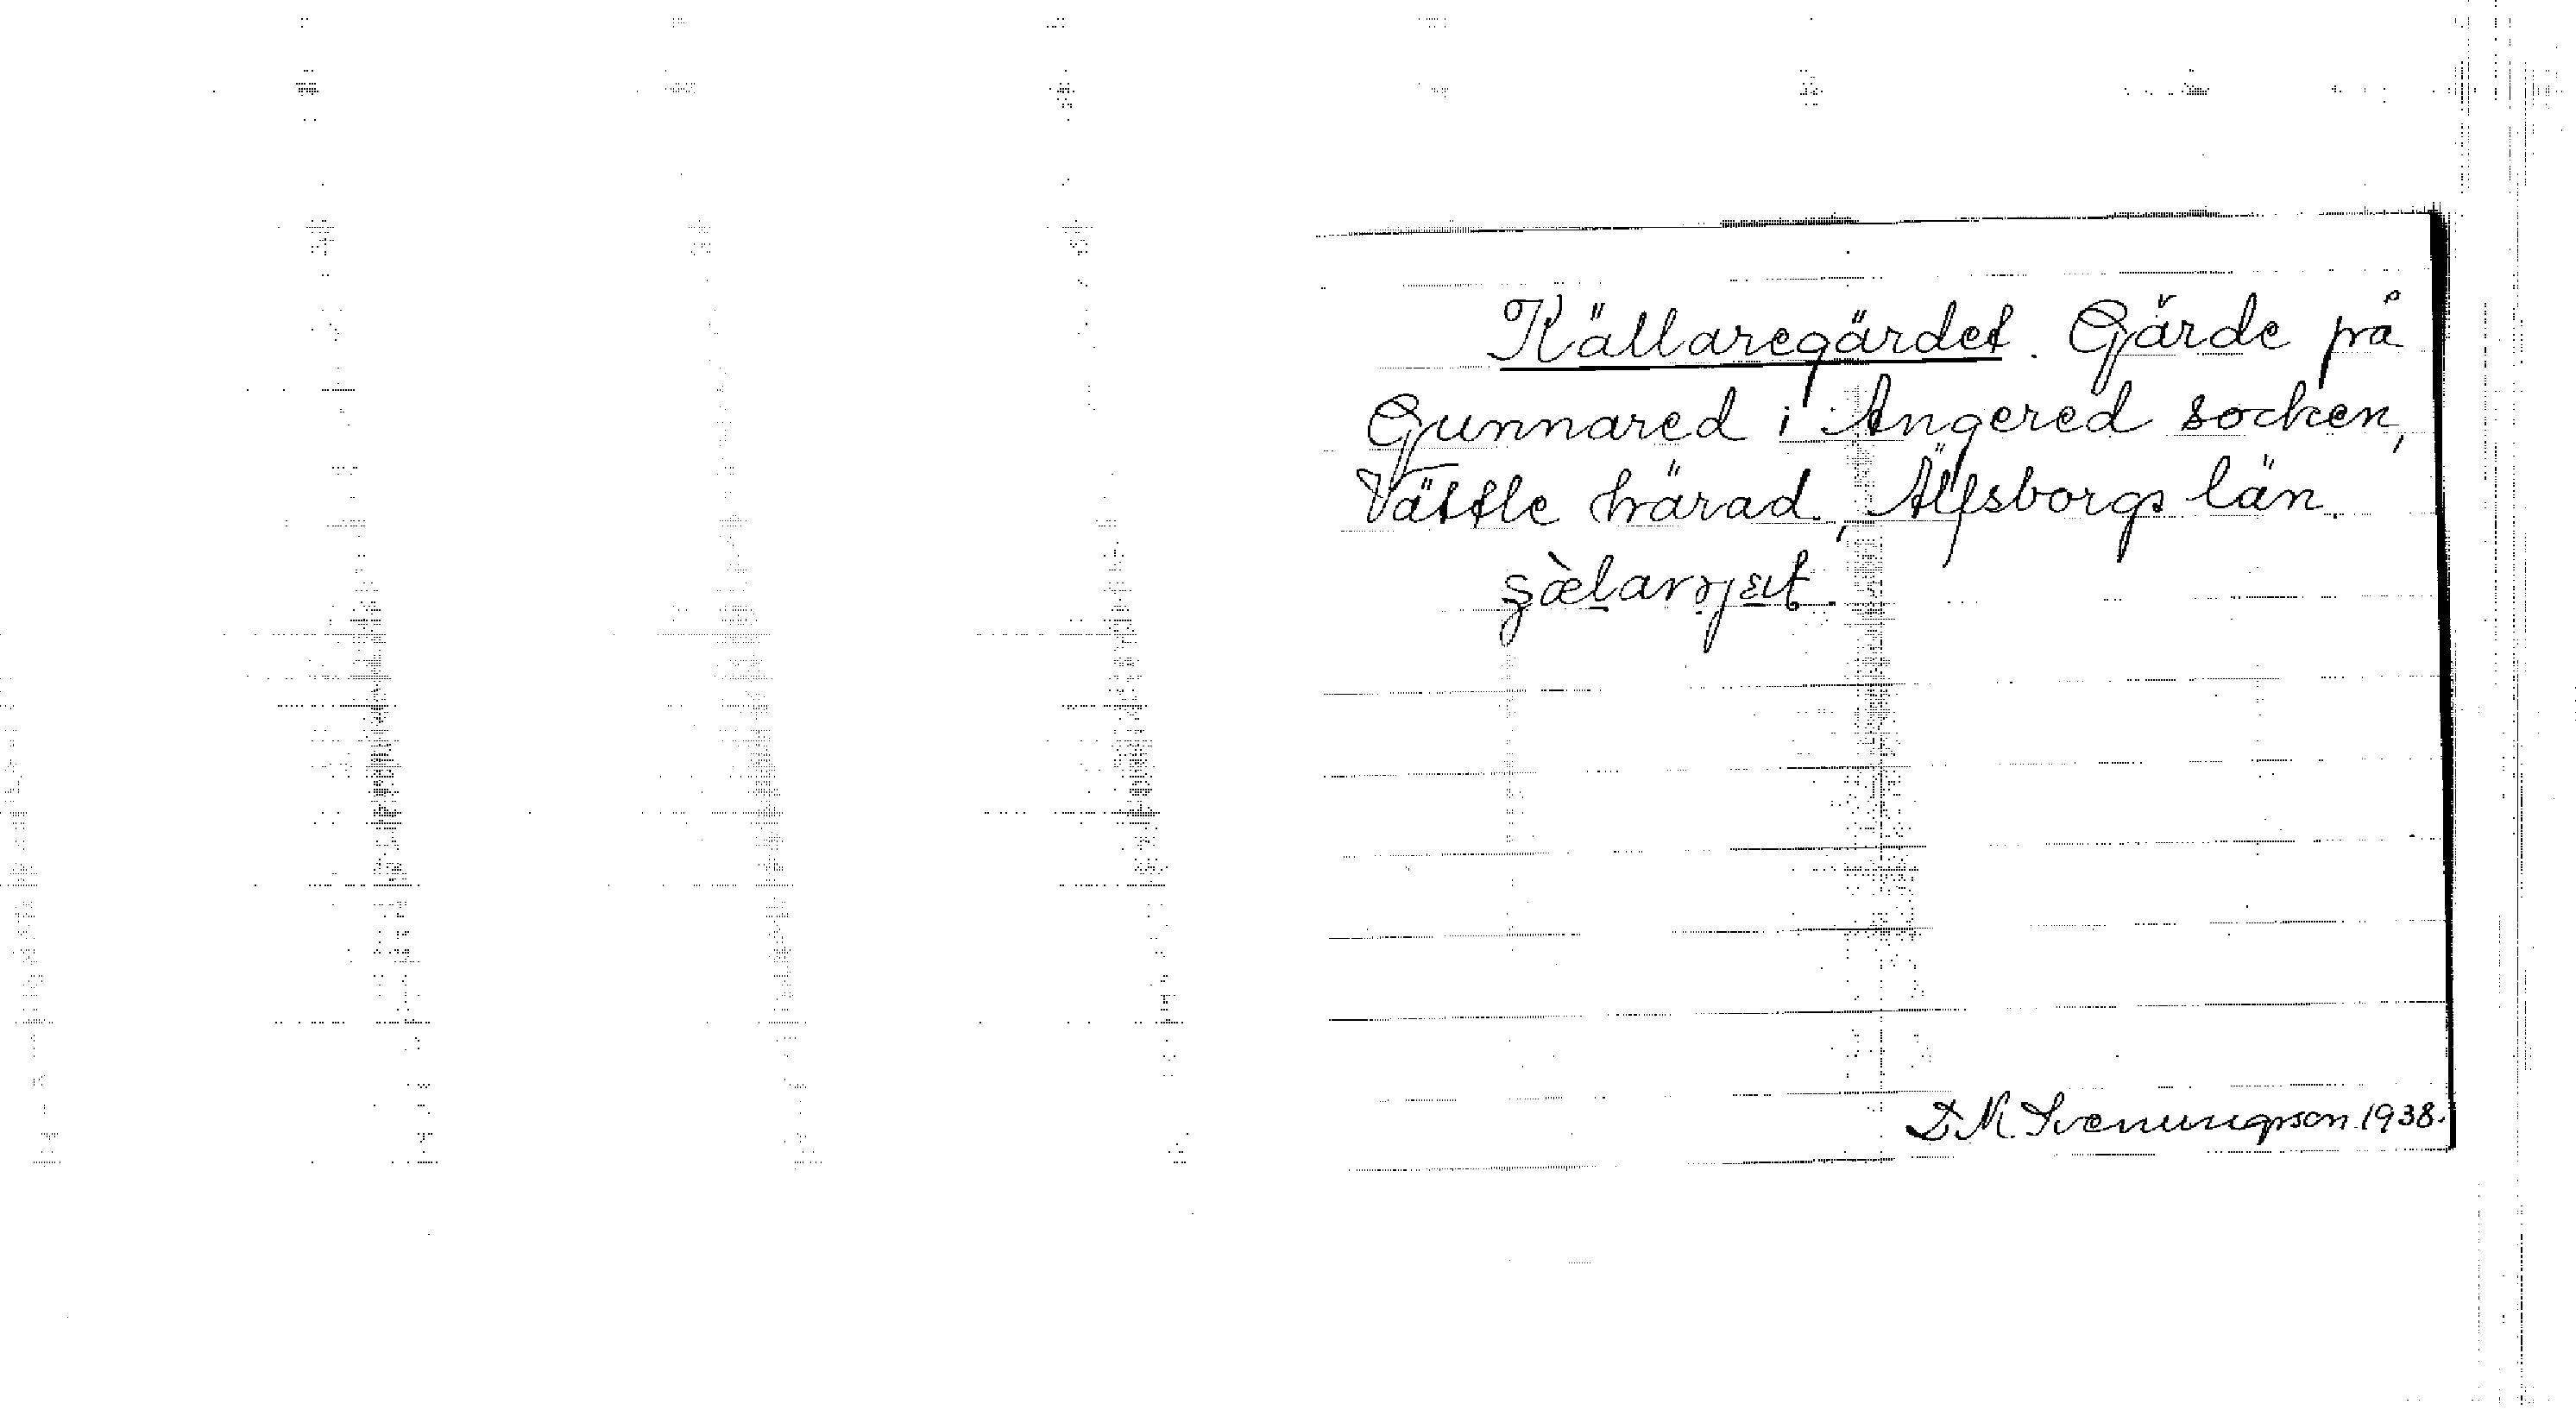 Källaregärdet. Gärde på
Gunnared i Angered socken,
Vättle härad, Älfsborgs län.
D.M. Svenungsson 1938.